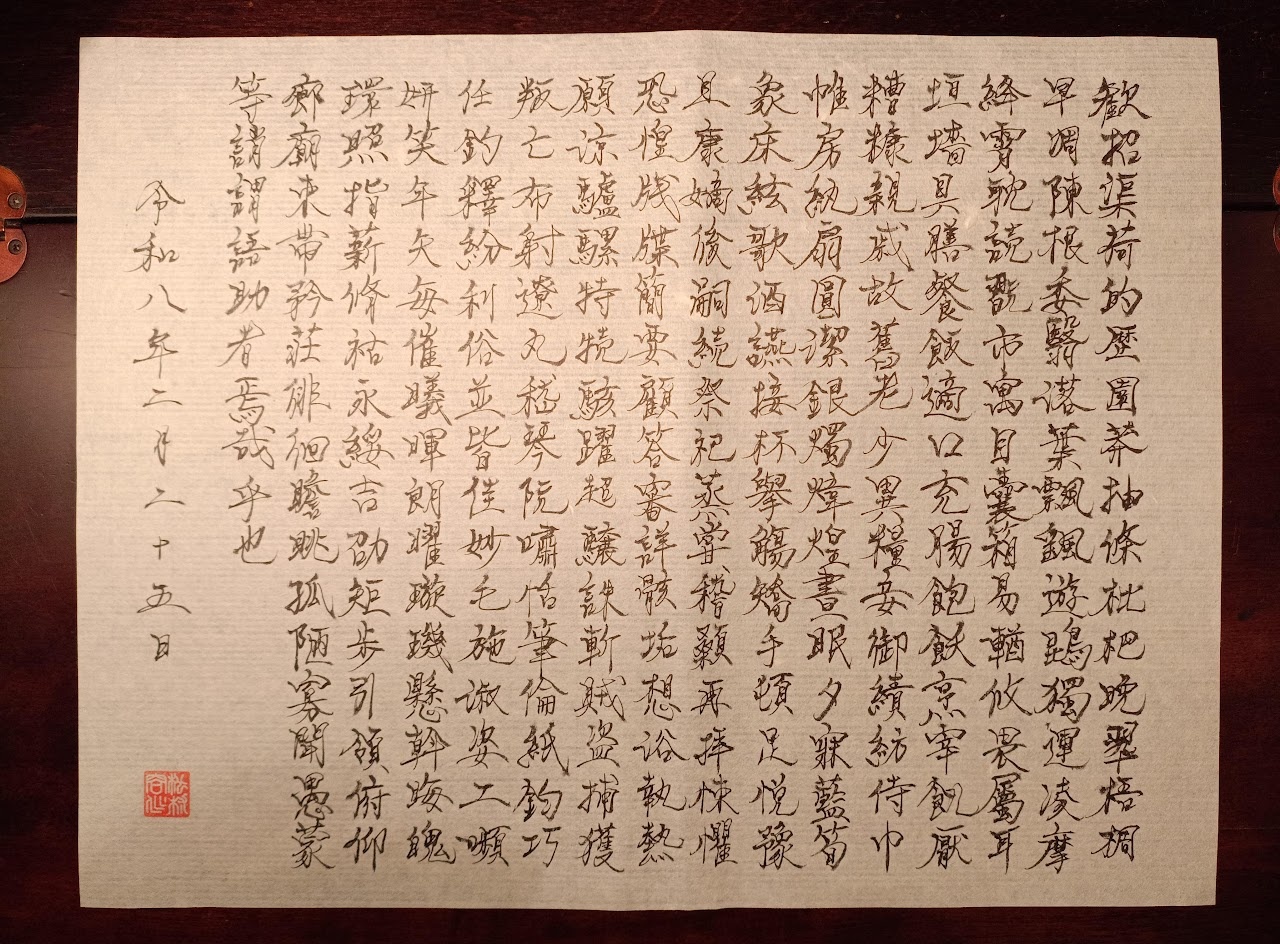 歡招渠荷的歴園莽抽條枇杷晩翠梧桐
早凋陳根委翳落葉飄颻遊鵾獨運凌摩
絳霄耽読翫市寓目囊箱易輶攸畏屬耳
垣墻具膳餐飯適口充腸飽飫烹宰飢厭
糟糠親戚故舊老少異糧妾御績紡侍巾
帷房紈扇圓潔銀燭煒煌晝眠夕寐藍筍
象床絃歌酒讌接杯擧觴矯手頓足悦豫
且康嫡後嗣続祭祀蒸嘗稽顙再拝悚懼
恐惶牋牒簡要顧答審詳骸垢想浴執熱
願涼驢騾特犢駭躍超驤誅斬賊盗捕獲
叛亡布射遼丸嵇琴阮嘯恬筆倫紙鈞巧
任釣釋紛利俗並皆佳妙毛施淑姿工嚬
妍笑年矢毎催曦暉朗曜璇璣懸斡晦魄
環照指薪脩祜永綏吉劭矩歩引領俯仰
廊廟束帯矜荘俳徊瞻眺孤陋寡聞愚蒙
等誚謂語助者焉哉乎也
令和八年二月二十五日